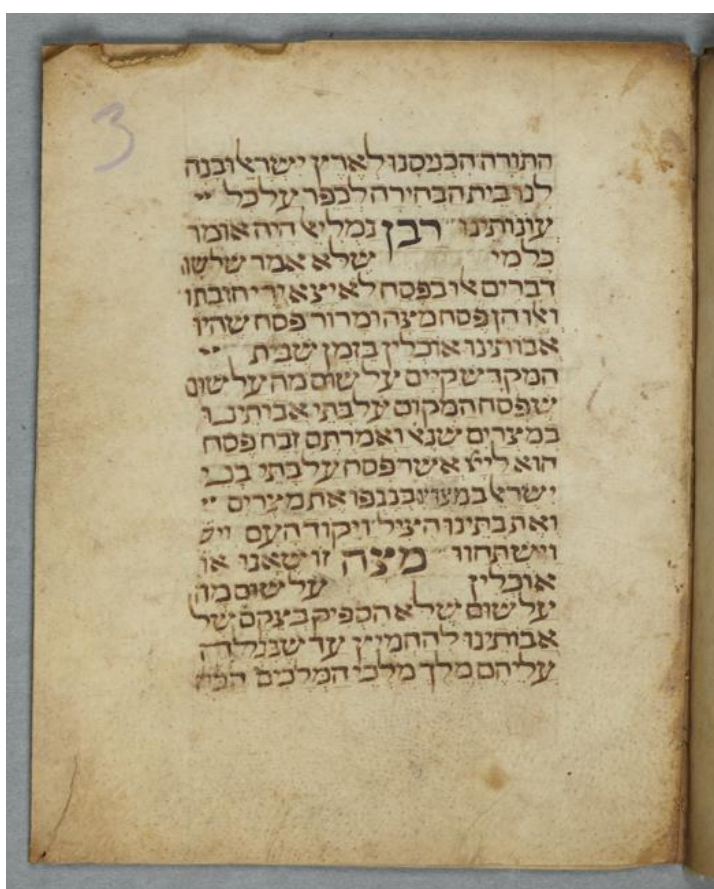 3
התורה הכניסנו לארץ ישראל ובנה
לנו בית הבחירה לכפר על כל
עונותינו רבן גמליאל היה אומר
כל מי שלא אמר שלשה
דברים אלו בפסח לא יצא ידי חובתו
ואלו הן פסח מצה ומרור פסח שהיו
אבותינו אוכלין בזמן שבית
המקדש קיים על שום מה על שום
שפסח המקום על בתי אבותינו
במצרים שנא ואמרתם זבח פסח
הוא ליי אשר פסח על בתי בני
ישראל במצרים בנגפו את מצרים
ואת בתינו הציל ויקוד העם
וישתחוו מצה זו שאנו או
אוכלין על שום מה
על שום שלא הספיק בצקם של
אבותינו להחמיץ עד שנגלה
עליהם מלך מלכי המלכים הקה